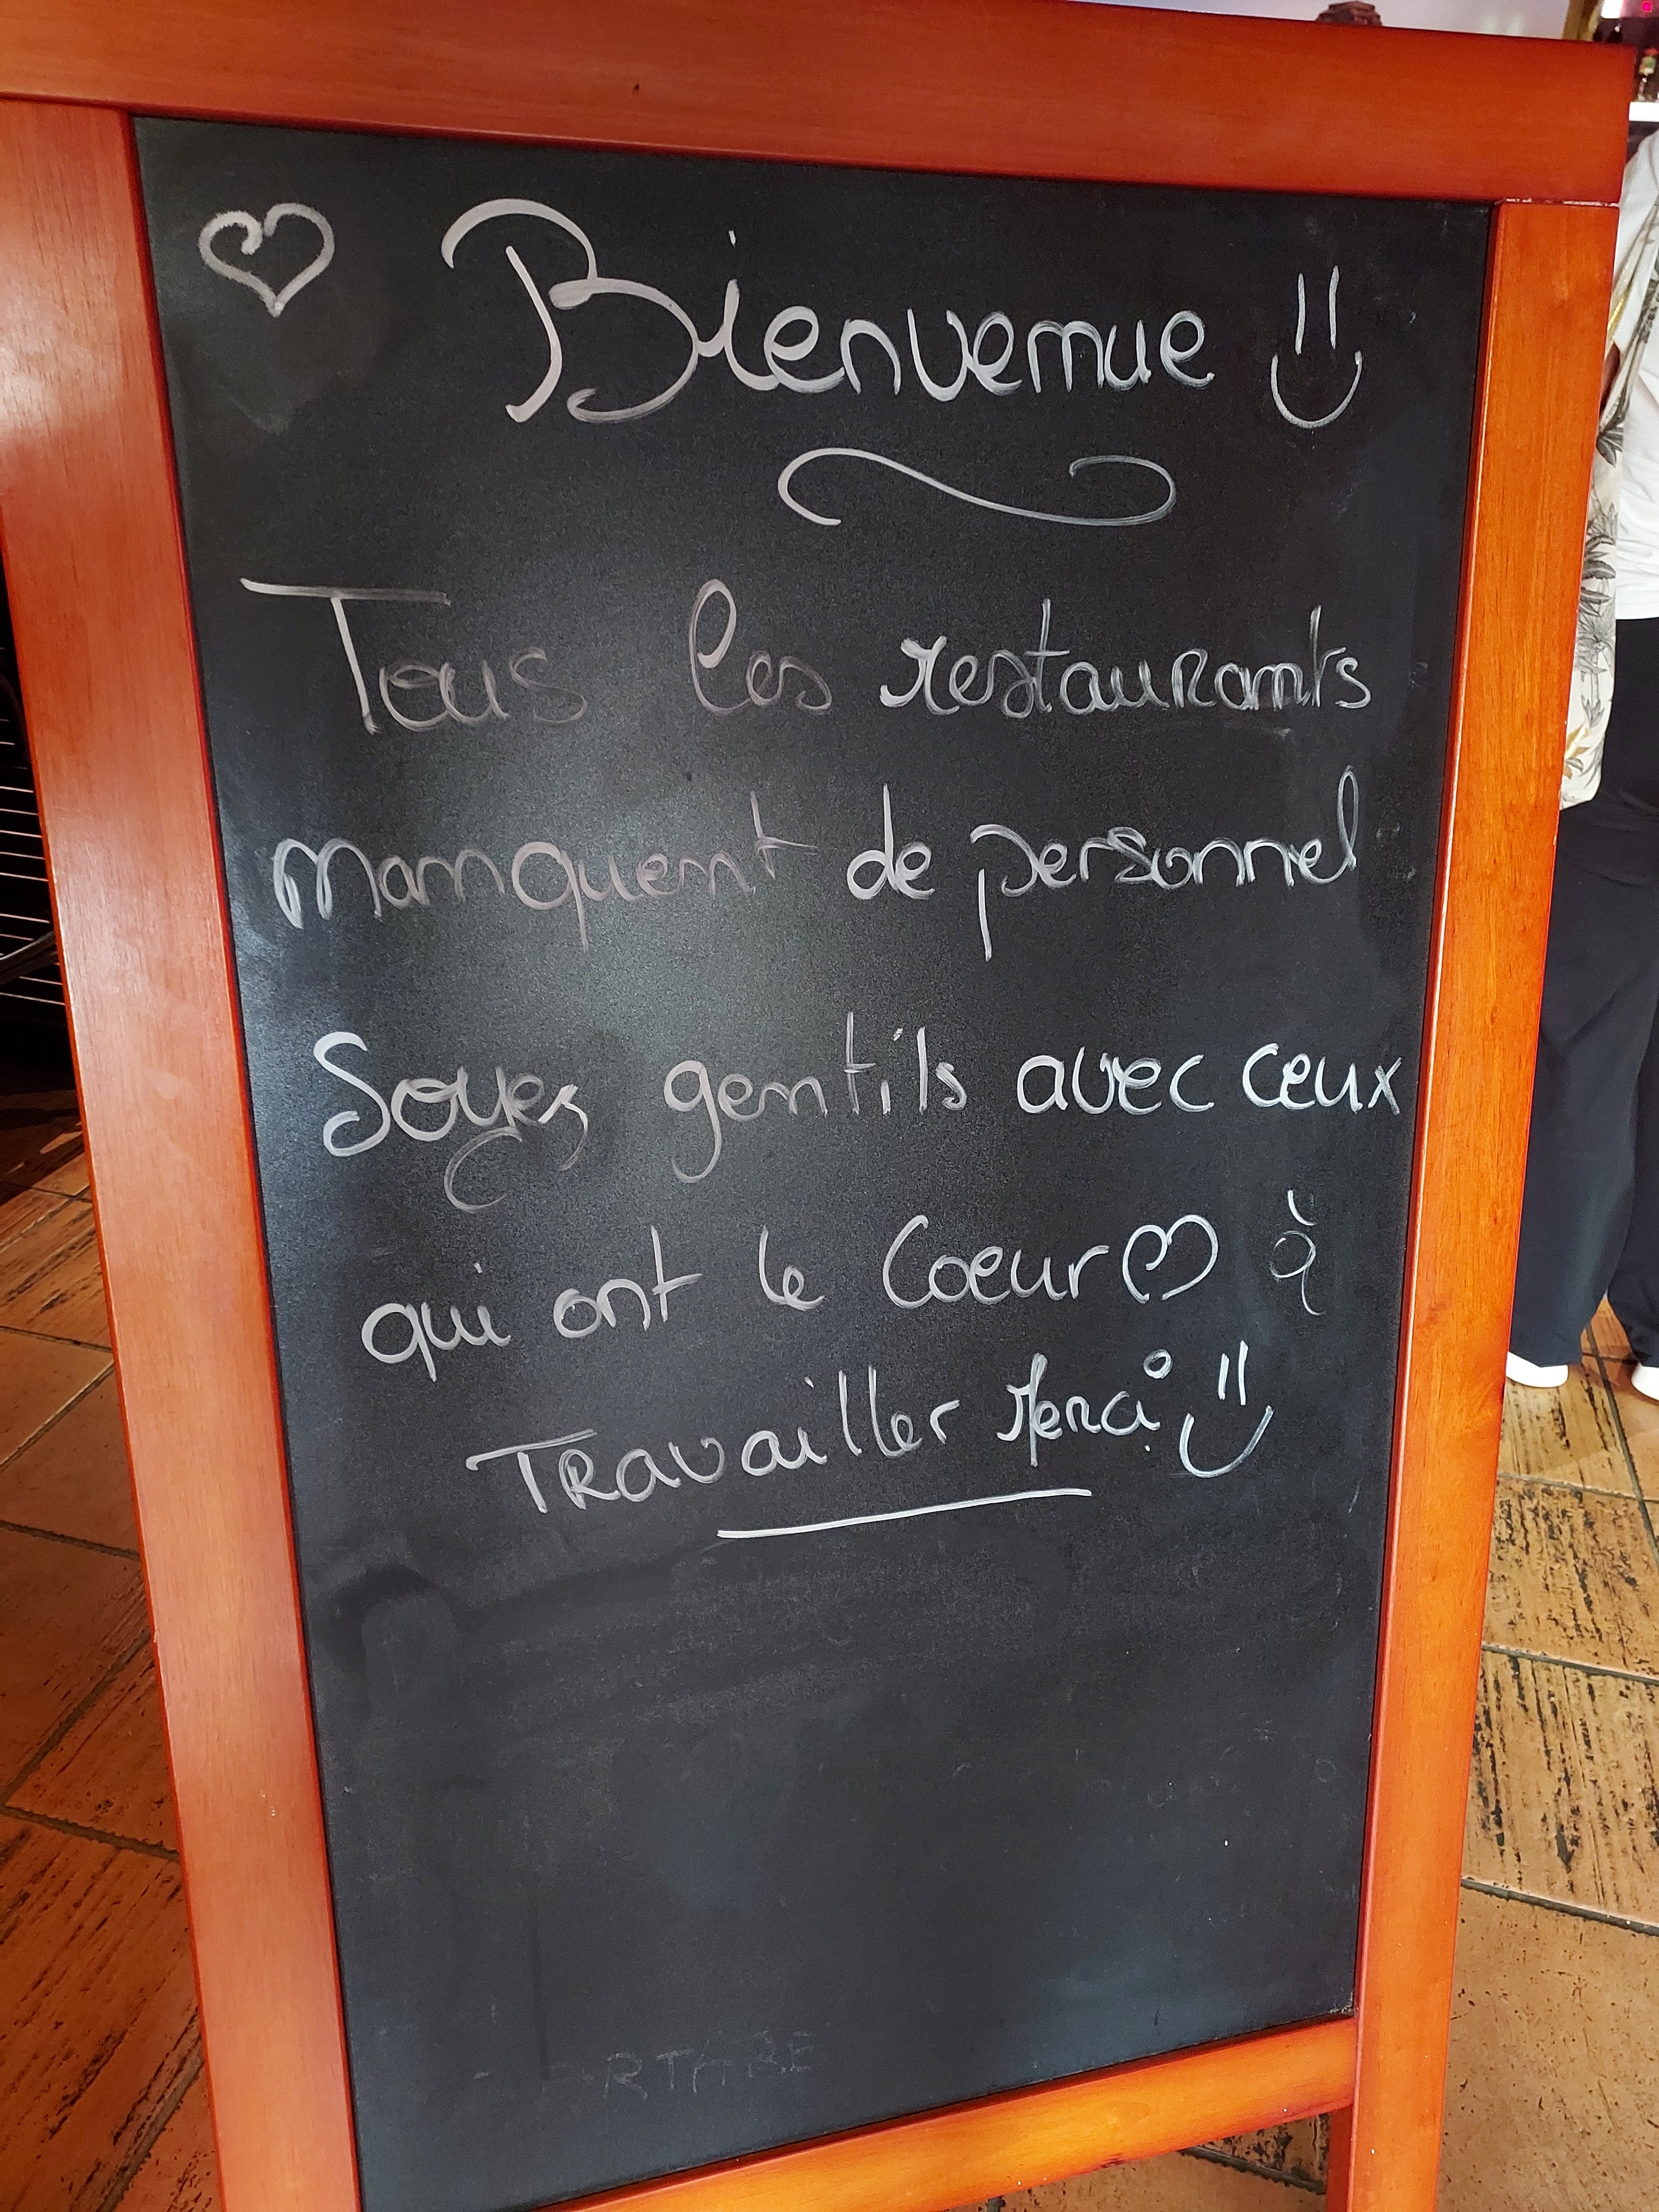 Bienvenue
Tous les restaurants
manquent de personnel
Soyez gentils avec ceux
qui ont le Coeur à
Travailler Merci